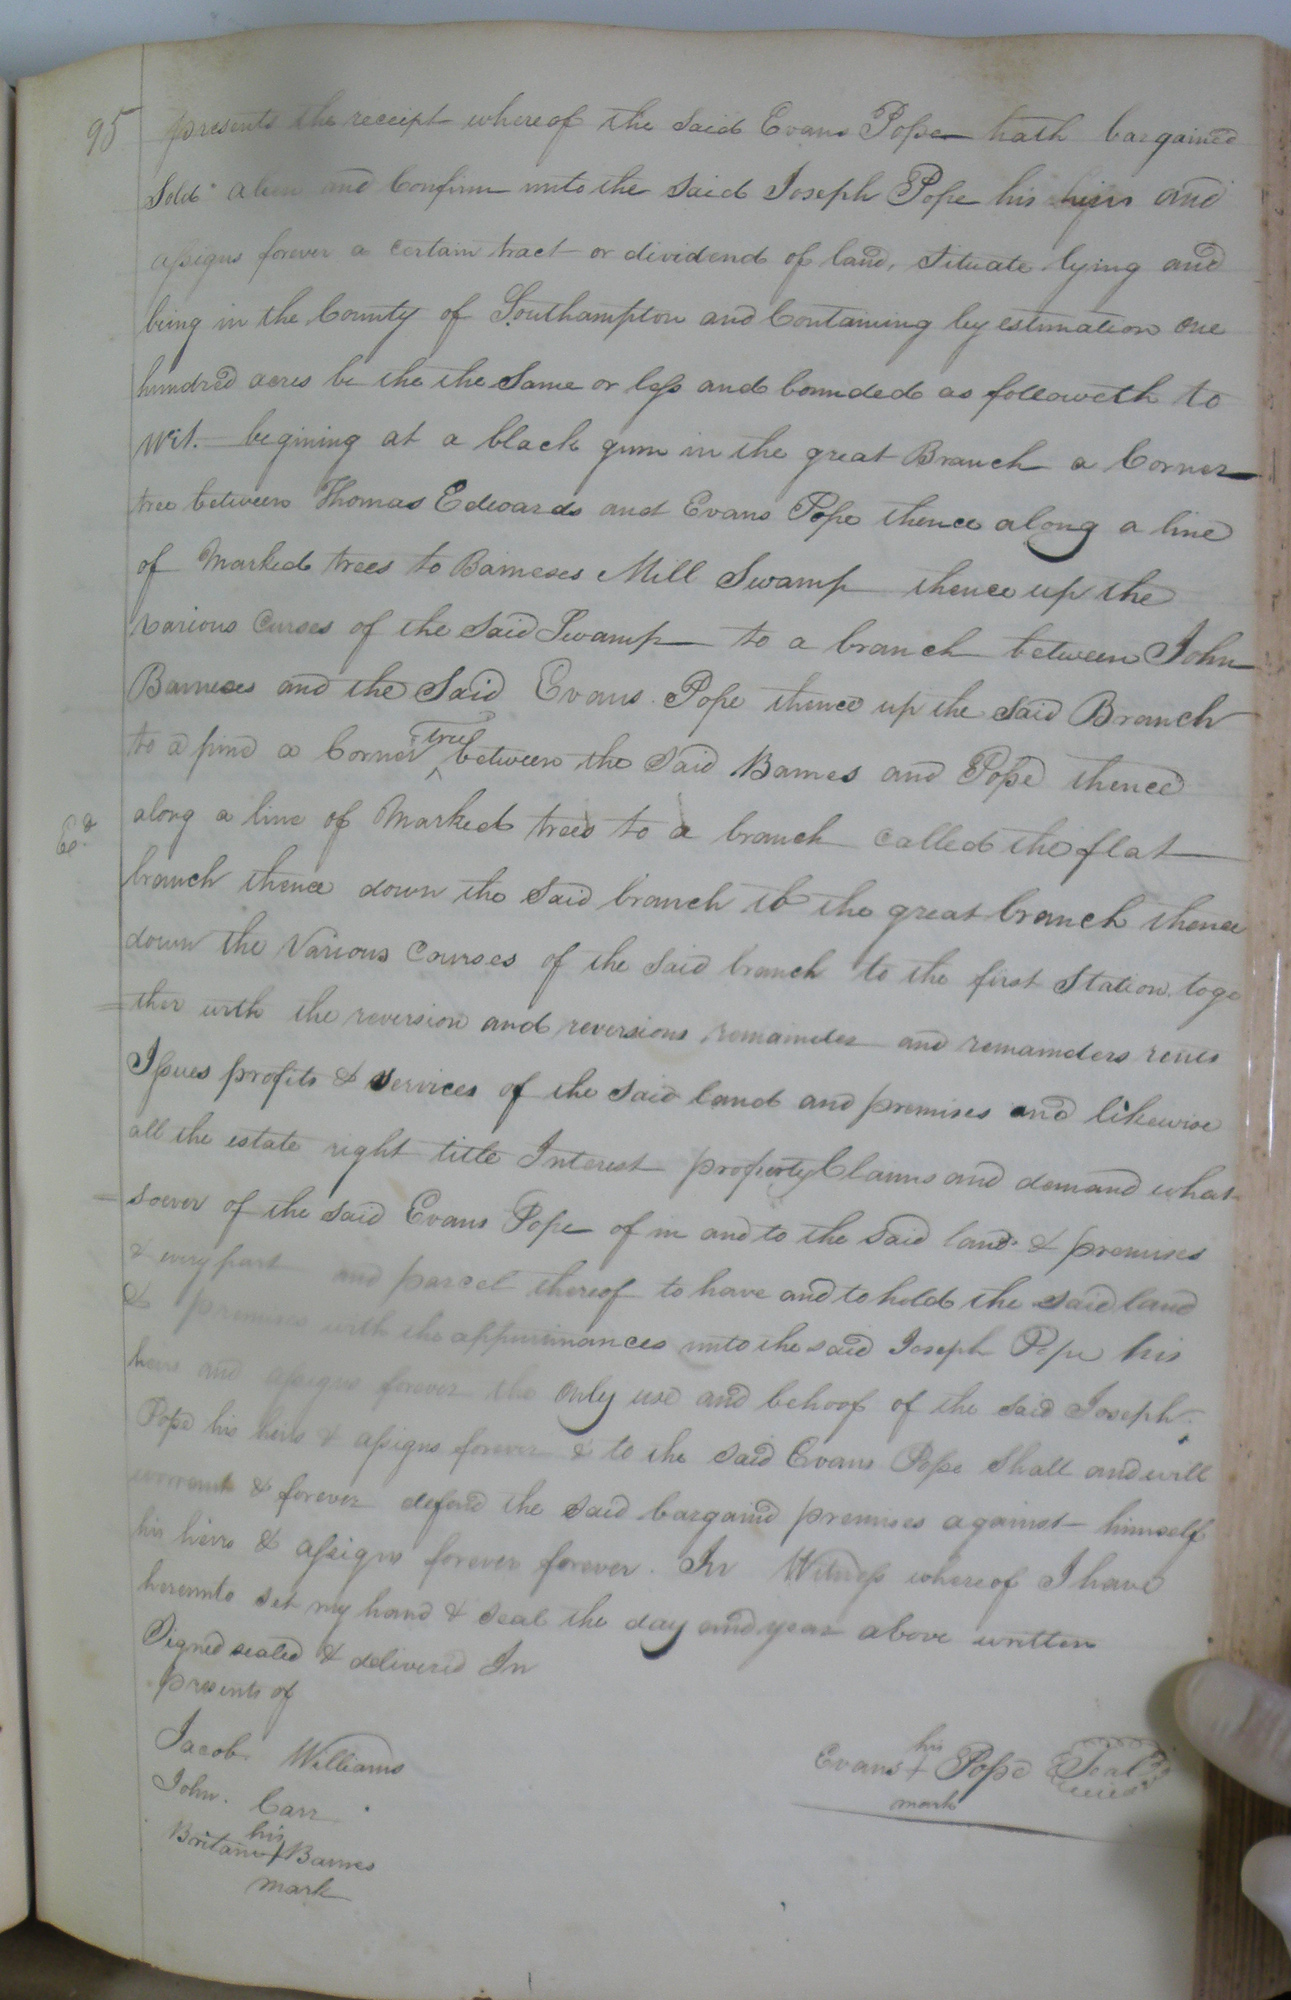 95 presents the receipt whereof the said Evans Pope hath bargained
Sold alien and Confirm unto the said Joseph Pope his heirs and
assigns forever a certain tract or dividend of land, situate lying and
being in the County of Southampton and Containing by estimation one
hundred acres be the the same or less and bounded as followeth to
wit. begining at a black gum in the great Branch a Corner
tree between Thomas Edwards and Evans Pope thence along a line
of Marked trees to Barneses Mill Swamp thence up the
various Curses of the said Swamp to a branch between John
Barneses and the Said Evans Pope thence up the said Branch
to a pine a Corner tree between the said Barnes and Pope thence
along a line of Marked trees to a branch called the flat
Ed.
branch thence down the said branch to the great branch thence
down the Various Courses of the said branch to the first Station toge
=ther with the reversion and reversions remainder and remainders rents
Issues profits & services of the said land and premises and likewise
all the estate right title Interest property Claims and demand what
=soever of the said Evans Pope of in and to the said land & premises
& every part and parcel thereof to have and to hold the said land
& premises with the appurtinances unto the said Joseph Pope his
heirs and assigns forever the only use and behoof of the said Joseph
Pope his heirs & assigns forever & to the said Evans Pope shall and will
warrant & forever defend the said bargaind premises against himself
his heirs & assigns forever forever. In Witness whereof I have
hereunto set my hand & seal the day and year above written
Signed sealed & delivered In
presents of
Jacob Williams
John Carr
his
Britain + Barnes
mark
his
Evans + Pope Seal
mark